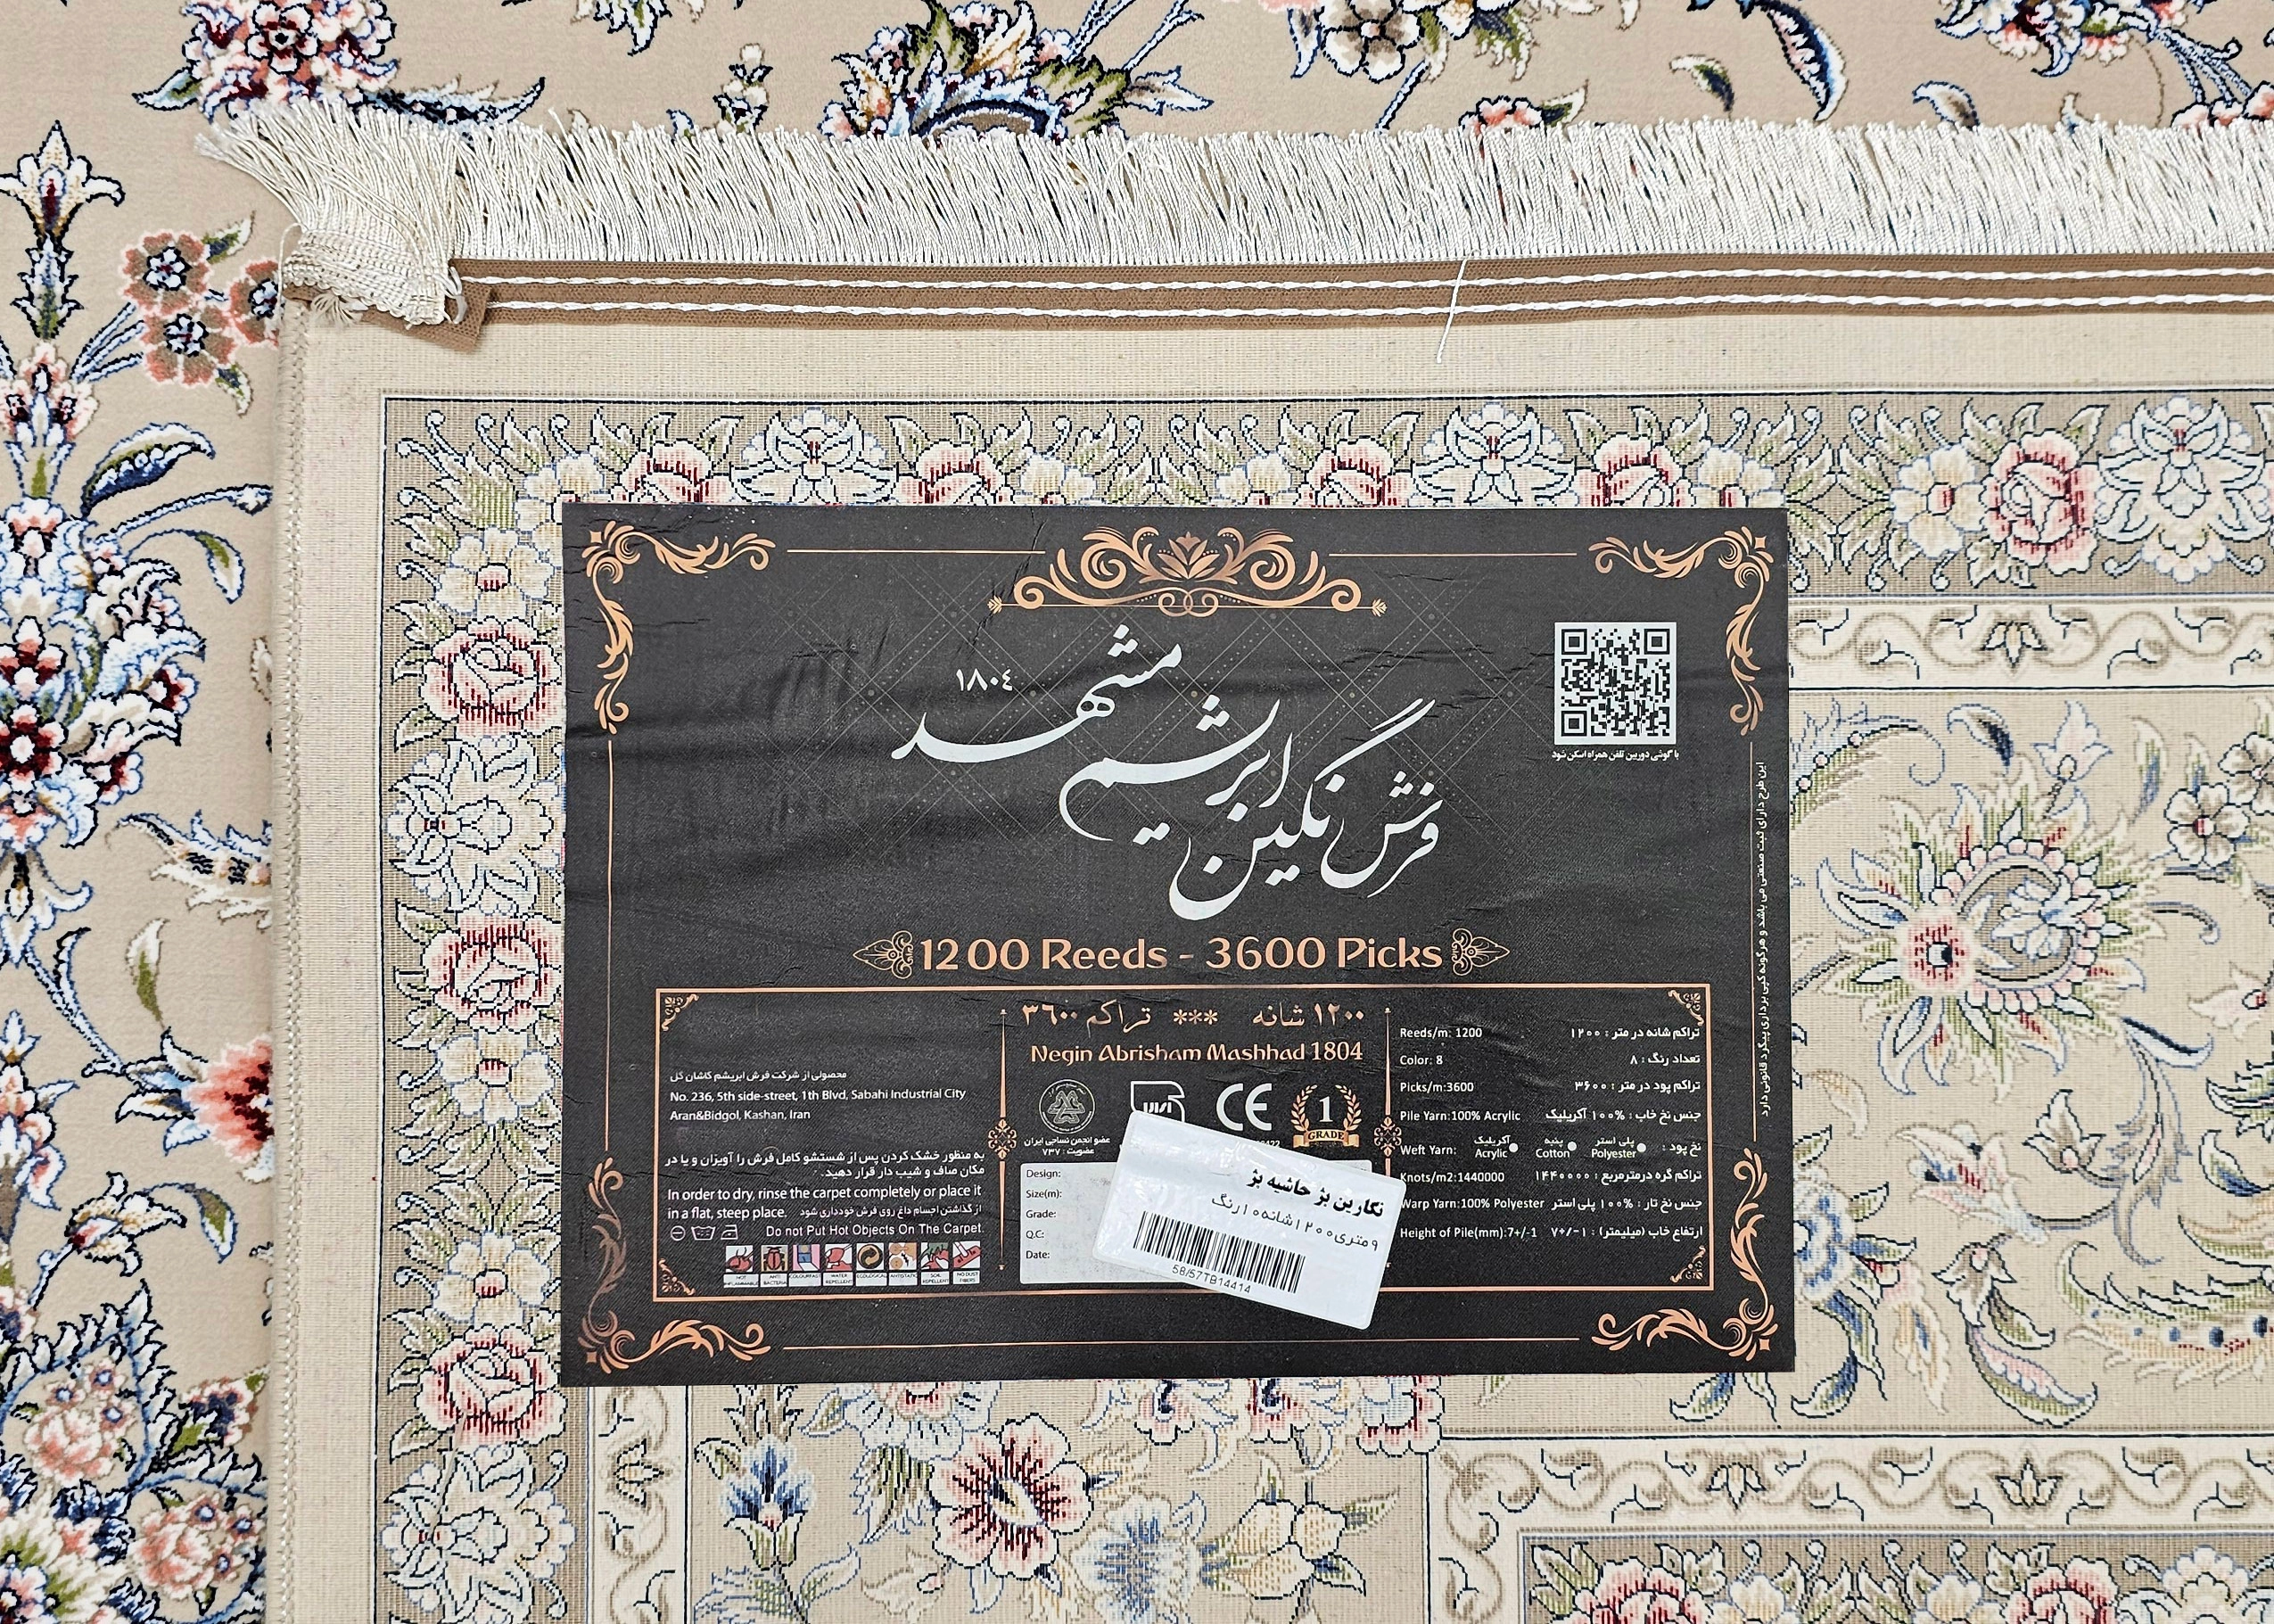 فرش نگین ابریشم مشهد
۱۸۰٤
با گوشی دوربین تلفن همراه اسکن شود
این طرح دارای ثبت صنعتی می باشد و هرگونه کپی برداری پیگرد قانونی دارد
1200 Reeds - 3600 Picks
۱۲۰۰ شانه *** تراکم ۳٦۰۰
Negin Abrisham Mashhad 1804
CE
1
GRADE
عضو انجمن نساجی ایران
عضویت : ۷۳۷
Design:
Size(m):
Grade:
Q.C:
Date:
نگارین بژ حاشیه بژ
۹متری۱۲۰۰شانه۱۰رنگ
58/57TB14414
محصولی از شرکت فرش ابریشم کاشان گل
No. 236, 5th side-street, 1th Blvd, Sabahi Industrial City
Aran&Bidgol, Kashan, Iran
به منظور خشک کردن پس از شستشو کامل فرش را آویزان و یا در
مکان صاف و شیب دار قرار دهید.
In order to dry, rinse the carpet completely or place it
in a flat, steep place. از گذاشتن اجسام داغ روی فرش خودداری شود
Do not Put Hot Objects On The Carpet.
NOT INFLAMMABLE
ANTI BACTERIA
COLOURFAST
WATER REPELLENT
ECOLOGICAL
ANTISTATIC
SOIL REPELLENT
NO DUST FIBERS
Reeds/m: 1200 تراکم شانه در متر : ۱۲۰۰
Color: 8 تعداد رنگ : ۸
Picks/m:3600 تراکم پود در متر : ۳۶۰۰
Pile Yarn:100% Acrylic جنس نخ خاب : %۱۰۰ آکریلیک
Weft Yarn: آکریلیک Acrylic پنبه Cotton پلی استر Polyester نخ پود :
Knots/m2:1440000 تراکم گره درمترمربع : ۱۴۴۰۰۰۰
Warp Yarn:100% Polyester جنس نخ تار : %۱۰۰ پلی استر
Height of Pile(mm):7+/-1 ارتفاع خاب (میلیمتر) : ۷+/-۱